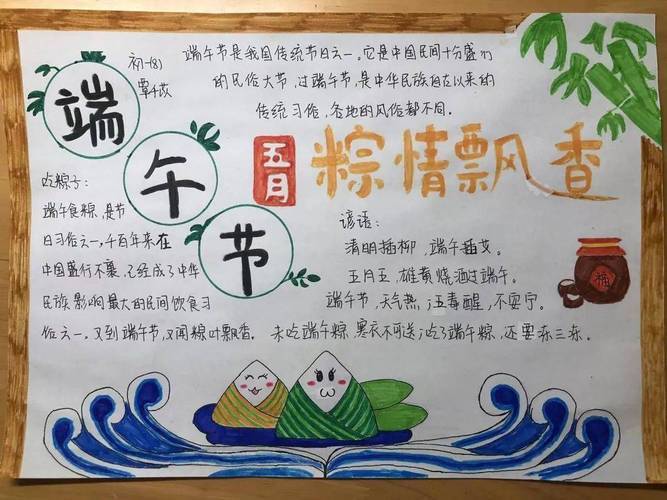 端午节
初一(8)
覃千苡
端午节是我国传统节日之一。它是中国民间十分盛行
的民俗大节,过端午节,是中华民族自古以来的
传统习俗,各地的风俗都不同。
五月
粽情飘香
吃粽子:
端午食粽,是节
日习俗之一,千百年来在
中国盛行不衰,已经成了中华
民族影响最大的民间饮食习
俗之一,又到端午节,又闻粽叶飘香。
谚语:
清明插柳,端午插艾。
五月五,雄黄烧酒过端午。
端午节,天气热;五毒醒,不安宁。
未吃端午粽,寒衣不可送;吃了端午粽,还要冻三冻。
福